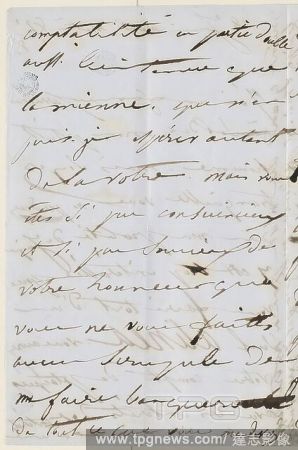 comptabilité en partie double
aussi bien tenue que
la mienne. que n'en
puis je espérer autant
de la vôtre mais vous
êtes si peu consciencieux
et si peu soucieux de
votre honneur que
vous ne vous faites
aucun scrupule de
me faire banqueroute
de tout ce que vous me
TPG IMAGES
www.tpgnews.com / 達志影像